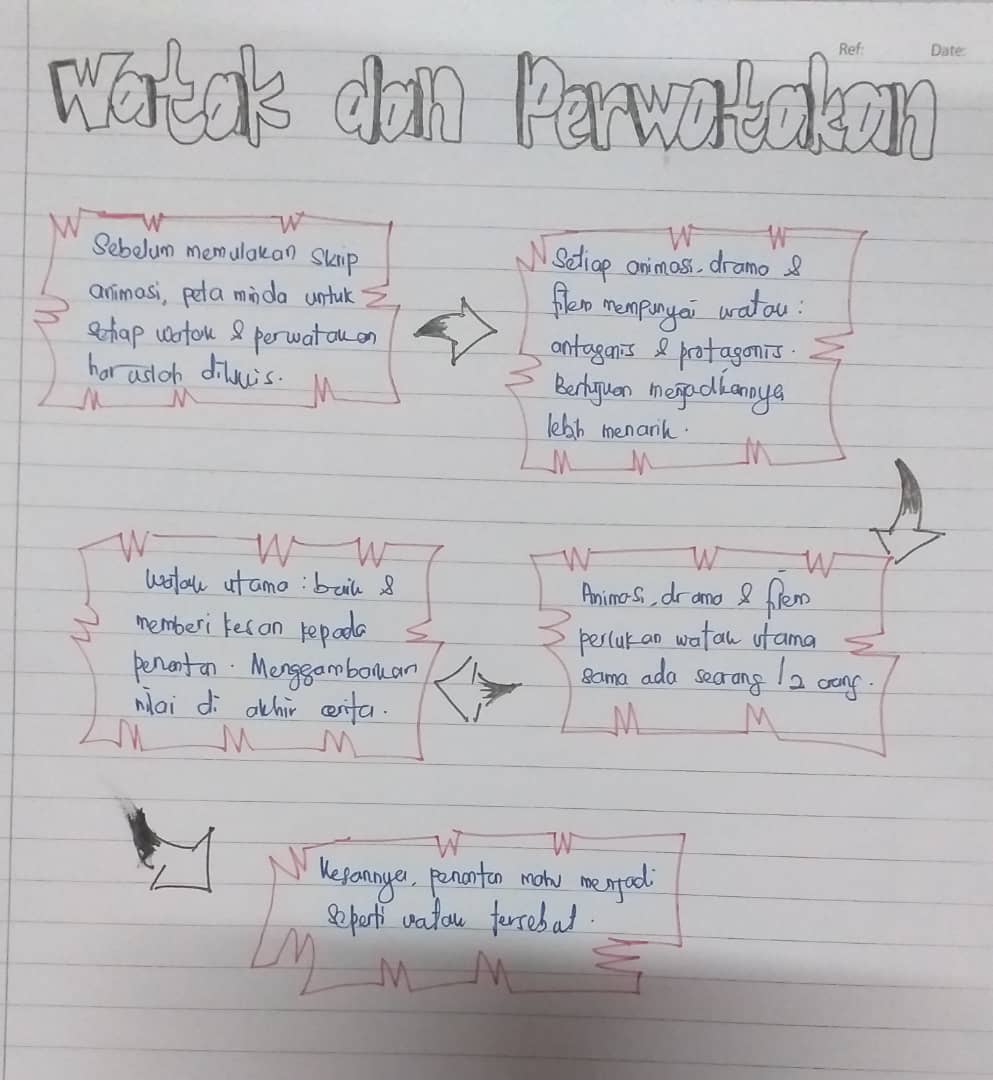 Ref: Date:
Watak dan Perwatakan
Sebelum memulakan skrip
animasi, peta minda untuk
setiap watak & perwatakan
haruslah dilukis.
Setiap animasi, drama &
filem mempunyai watak :
antagonis & protagonis.
Bertujuan menjadikannya
lebih menarik.
Animasi, drama & filem
perlukan watak utama
sama ada seorang / 2 orang.
Watak utama : baik &
memberi kesan kepada
penonton. Menggambarkan
nilai di akhir cerita.
Kesannya, penonton mahu menjadi
seperti watak tersebut.